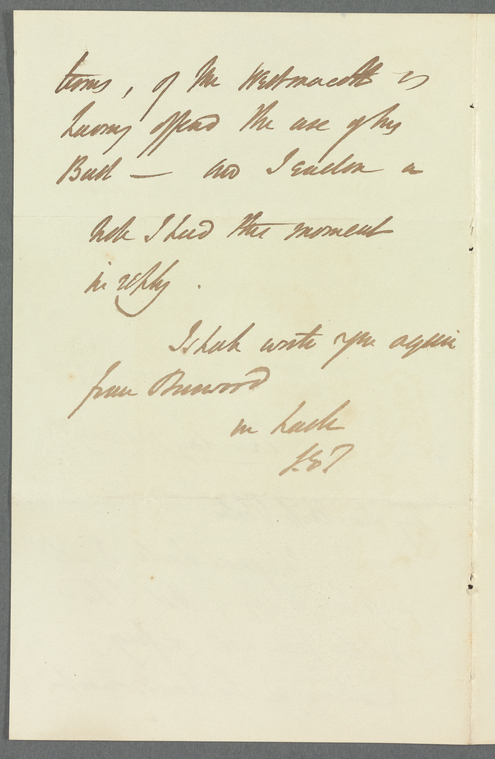 tions, of Mr Westmacott's
having offered the use of his
Bust — and I enclose a
note I had this moment
in reply.
I shall write you again
from
in haste